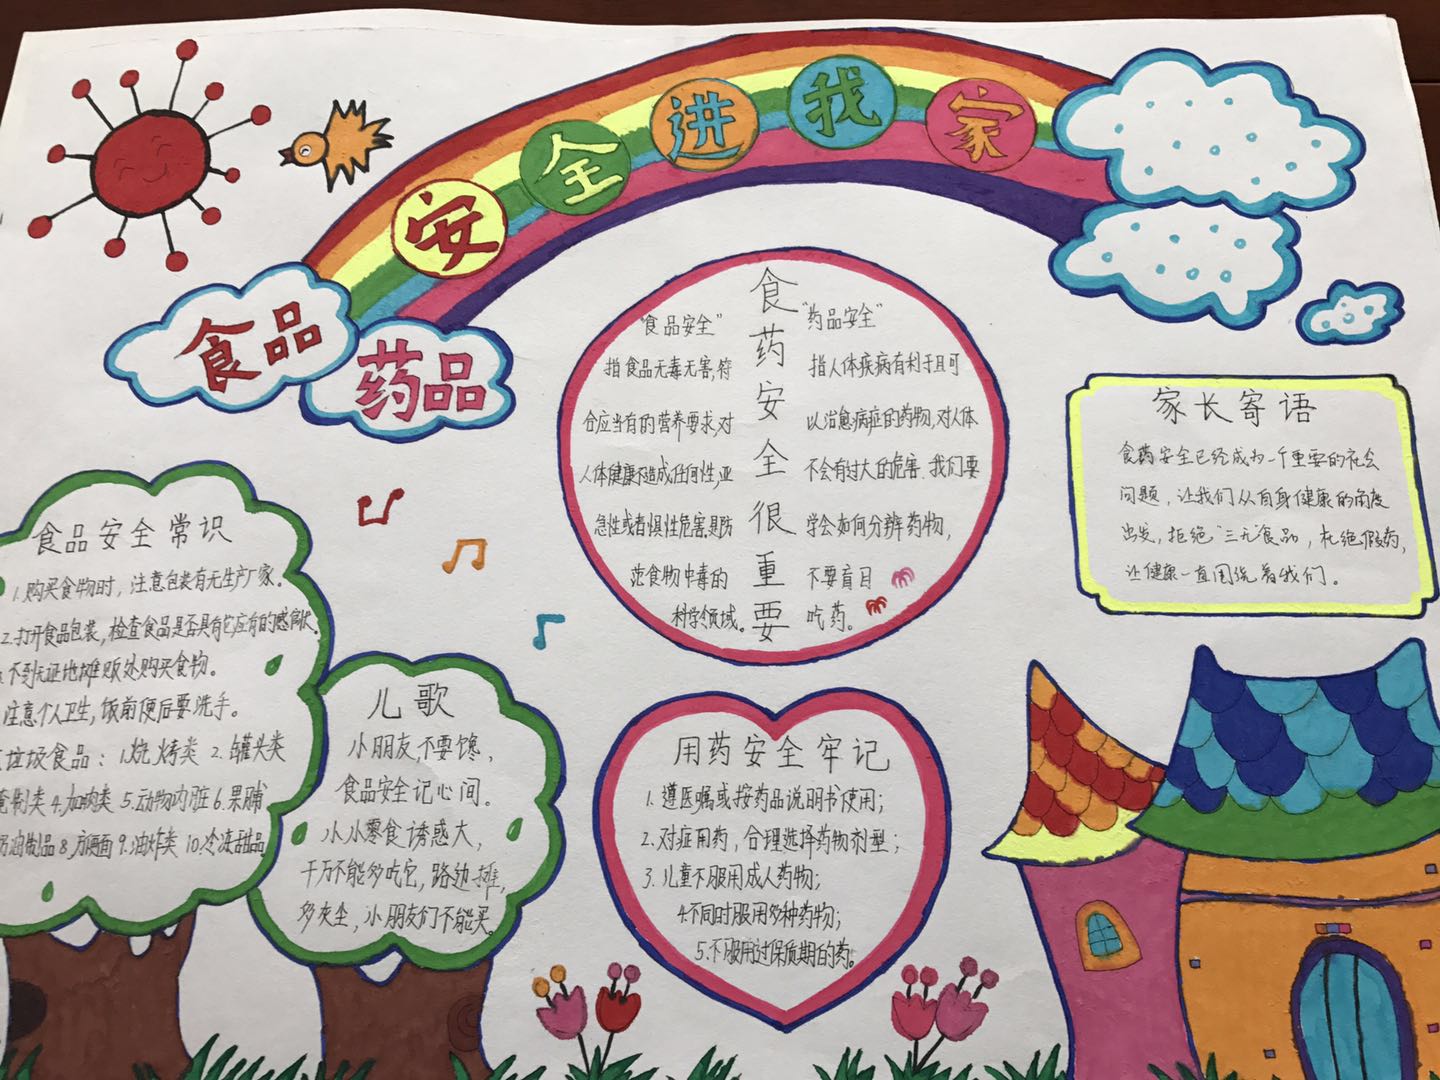 食品
药品
安全进我家
食药安全很重要
"食品安全"
指食品无毒无害,符
合应当有的营养要求,对
人体健康不造成任何性,亚
急性或者惧性危害.是防
范食物中毒的
科学领域。
"药品安全"
指人体疾病有利于且可
以治愈病症的药物,对人体
不会有过大的危害.我们要
学会如何分辨药物,
不要盲目
吃药。
家长寄语
食药安全已经成为一个重要的社会
问题,让我们从自身健康的角度
出发,拒绝"三无"食品,杜绝假药,
让健康一直围绕着我们。
食品安全常识
1.购买食物时,注意包装有无生产厂家。
2.打开食品包装,检查食品是否具有它应有的感
不到无证地摊贩处购买食物。
注意个人卫生,饭前便后要洗手。
垃圾食品:1.烧烤类 2.罐头类
制类 4.加肉类 5.动物内脏 6.果脯
油制品 8.方便面 9.油炸类 10.冷冻甜品
儿歌
小朋友,不要馋,
食品安全记心间。
小小零食诱惑大,
千万不能多吃它,路边摊,
多灰尘,小朋友们不能买。
用药安全牢记
1.遵医嘱或按药品说明书使用;
2.对症用药,合理选择药物剂型;
3.儿童不服用成人药物;
4.不同时服用多种药物;
5.不服用过保质期的药。